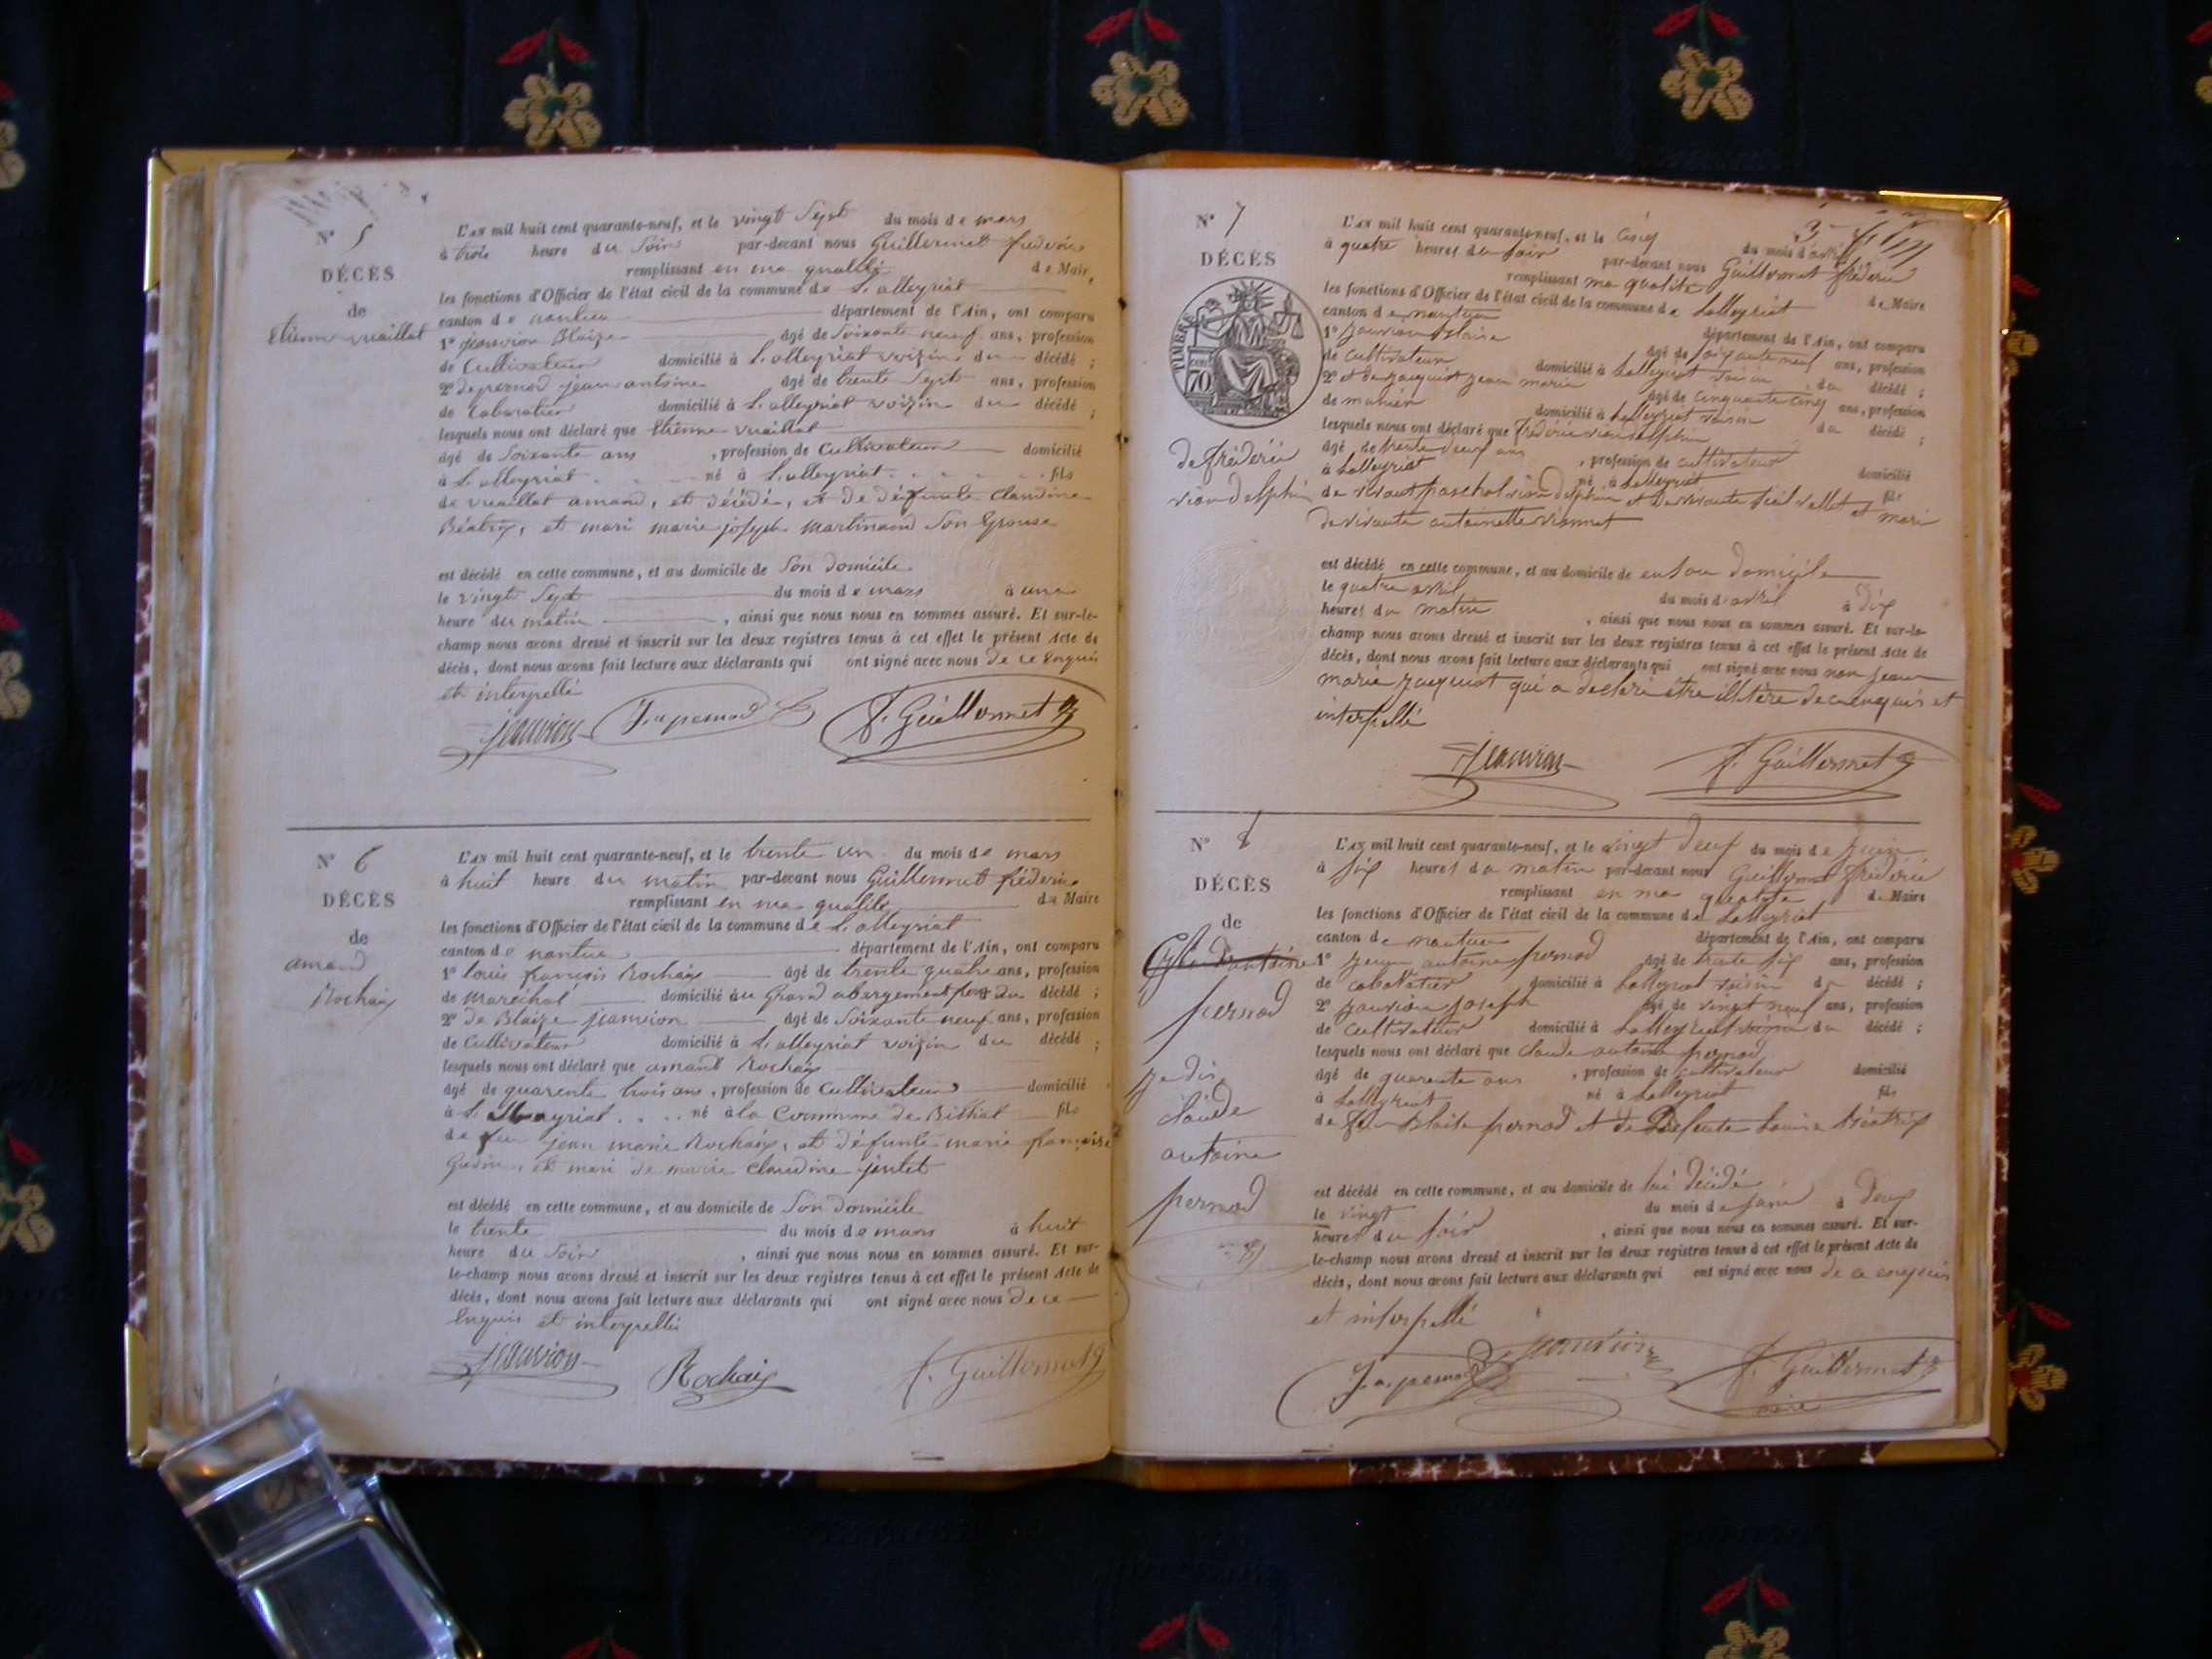 N° 5
DÉCÈS
de
Etienne vuaillat
L'AN mil huit cent quarante-neuf, et le vingt Sept du mois de mars
à trois heure du Soir par-devant nous Guillermet frederic
remplissant en ma qualité de Maire
les fonctions d'Officier de l'état civil de la commune de L'alleyriat
canton de nantua département de l'Ain, ont comparu
1° jeanvion Blaize âgé de Soixante neuf ans, profession
de Cultivateur domicilié à L'alleyriat voizin du décédé ;
2° de pernod jean antoine âgé de trente Sept ans, profession
de Cabaratier domicilié à L'alleyriat voizin du décédé ;
lesquels nous ont déclaré que Etienne vuaillat
âgé de Soixante ans , profession de Cultivateur domicilié
à L'alleyriat né à L'alleyriat fils
de vuaillat amand, et décédé, et de défunte Claudine
Béatrix, et mari marie joseph martinand Son Epouse
est décédé en cette commune, et au domicile de Son domicile
le vingt Sept du mois de mars à une
heure du matin , ainsi que nous nous en sommes assuré. Et sur-le-
champ nous avons dressé et inscrit sur les deux registres tenus à cet effet le présent Acte de
décès, dont nous avons fait lecture aux déclarants qui ont signé avec nous de ce Enquis
et interpellé
jeanvion J. a pernod F. Guillermet
N° 6
DÉCÈS
de
amand
Rochaix
L'AN mil huit cent quarante-neuf, et le trente un du mois de mars
à huit heure du matin par-devant nous Guillermet fréderic
remplissant en ma qualité de Maire
les fonctions d'Officier de l'état civil de la commune de L'alleyriat
canton de nantua département de l'Ain, ont comparu
1° louis françois Rochaix âgé de trente quatre ans, profession
de Maréchal domicilié au Grand abergement du décédé ;
2° de Blaize jeanvion âgé de Soixante neuf ans, profession
de Cultivateur domicilié à L'alleyriat voizin du décédé ;
lesquels nous ont déclaré que amand Rochaix
âgé de quarente trois ans, profession de Cultivateur domicilié
à L'alleyriat né à la Commune de Billiat fils
de feu jean marie Rochaix, et défunte marie françoise
et mari de marie Claudine juilet
est décédé en cette commune, et au domicile de Son domicile
le trente du mois de mars à huit
heure du Soir , ainsi que nous nous en sommes assuré. Et sur-
le-champ nous avons dressé et inscrit sur les deux registres tenus à cet effet le présent Acte de
décès, dont nous avons fait lecture aux déclarants qui ont signé avec nous de ce
Enquis et interpellés
jeanvion Rochaix F. Guillermet
N° 7
DÉCÈS
TIMBRE
70
de fréderic
vion delphin
L'AN mil huit cent quarante-neuf, et le cinq du mois d'avril
à quatre heures du soir par-devant nous Guillermet fréderic
remplissant ma qualité de Maire
les fonctions d'Officier de l'état civil de la commune de Lalleyriat
canton de nantua département de l'Ain, ont comparu
1° jeanvion blaise âgé de soixante neuf ans, profession
de cultivateur domicilié à Lalleyriat voisin du décédé ;
2° et de jacquiot jean marie âgé de cinquante cinq ans, profession
de domicilié à Lalleyriat voisin du décédé ;
lesquels nous ont déclaré que fréderic vion delphin
âgé de trente deux ans , profession de cultivateur domicilié
à Lalleyriat né à Lalleyriat fils
de vivant paschal vion delphin et de vivante vallet et mari
de vivante antoinette viennet
est décédé en cette commune, et au domicile de en son domicile
le quatre avril du mois d'avril à dix
heures du matin , ainsi que nous nous en sommes assuré. Et sur-le-
champ nous avons dressé et inscrit sur les deux registres tenus à cet effet le présent Acte de
décès, dont nous avons fait lecture aux déclarants qui ont signé avec nous non jean
marie jacquiot qui a declaré être illitère de ce enquis et
interpellé
jeanvion F. Guillermet
N° 8
DÉCÈS
de
pernod
je dis
claude
antoine
pernod
L'AN mil huit cent quarante-neuf, et le vingt deux du mois de juin
à six heures du matin par-devant nous Guillermet fréderic
remplissant en ma qualité de Maire
les fonctions d'Officier de l'état civil de la commune de Lalleyriat
canton de nantua département de l'Ain, ont comparu
1° jean antoine pernod âgé de trente six ans, profession
de cabaretier domicilié à Lalleyriat voisin du décédé ;
2° jeanvion joseph âgé de vingt neuf ans, profession
de cultivateur domicilié à Lalleyriat voisin du décédé ;
lesquels nous ont déclaré que claude antoine pernod
âgé de quarente ans , profession de cultivateur domicilié
à Lalleyriat né à Lalleyriat fils
de feu blaise pernod et de Defunte Louise béatrix
est décédé en cette commune, et au domicile de lui décédé
le vingt du mois de juin à deux
heures du soir , ainsi que nous nous en sommes assuré. Et sur-
le-champ nous avons dressé et inscrit sur les deux registres tenus à cet effet le présent Acte de
décès, dont nous avons fait lecture aux déclarants qui ont signé avec nous de ce enquis
et interpellé
J. a. pernod jeanvion F. Guillermet